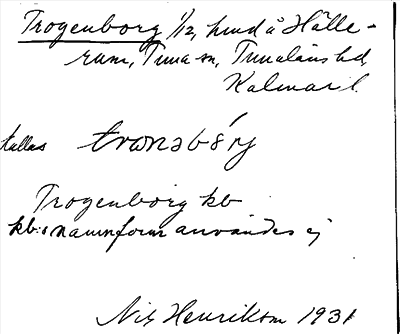 Trogenborg 1/12, hmd å Hälle-
rum, Tuna sn, Tunaläns hd
Kalmar l.
kallas
Trogenborg kb
kb:s namnform användes ej
Nils Henrikson 1931